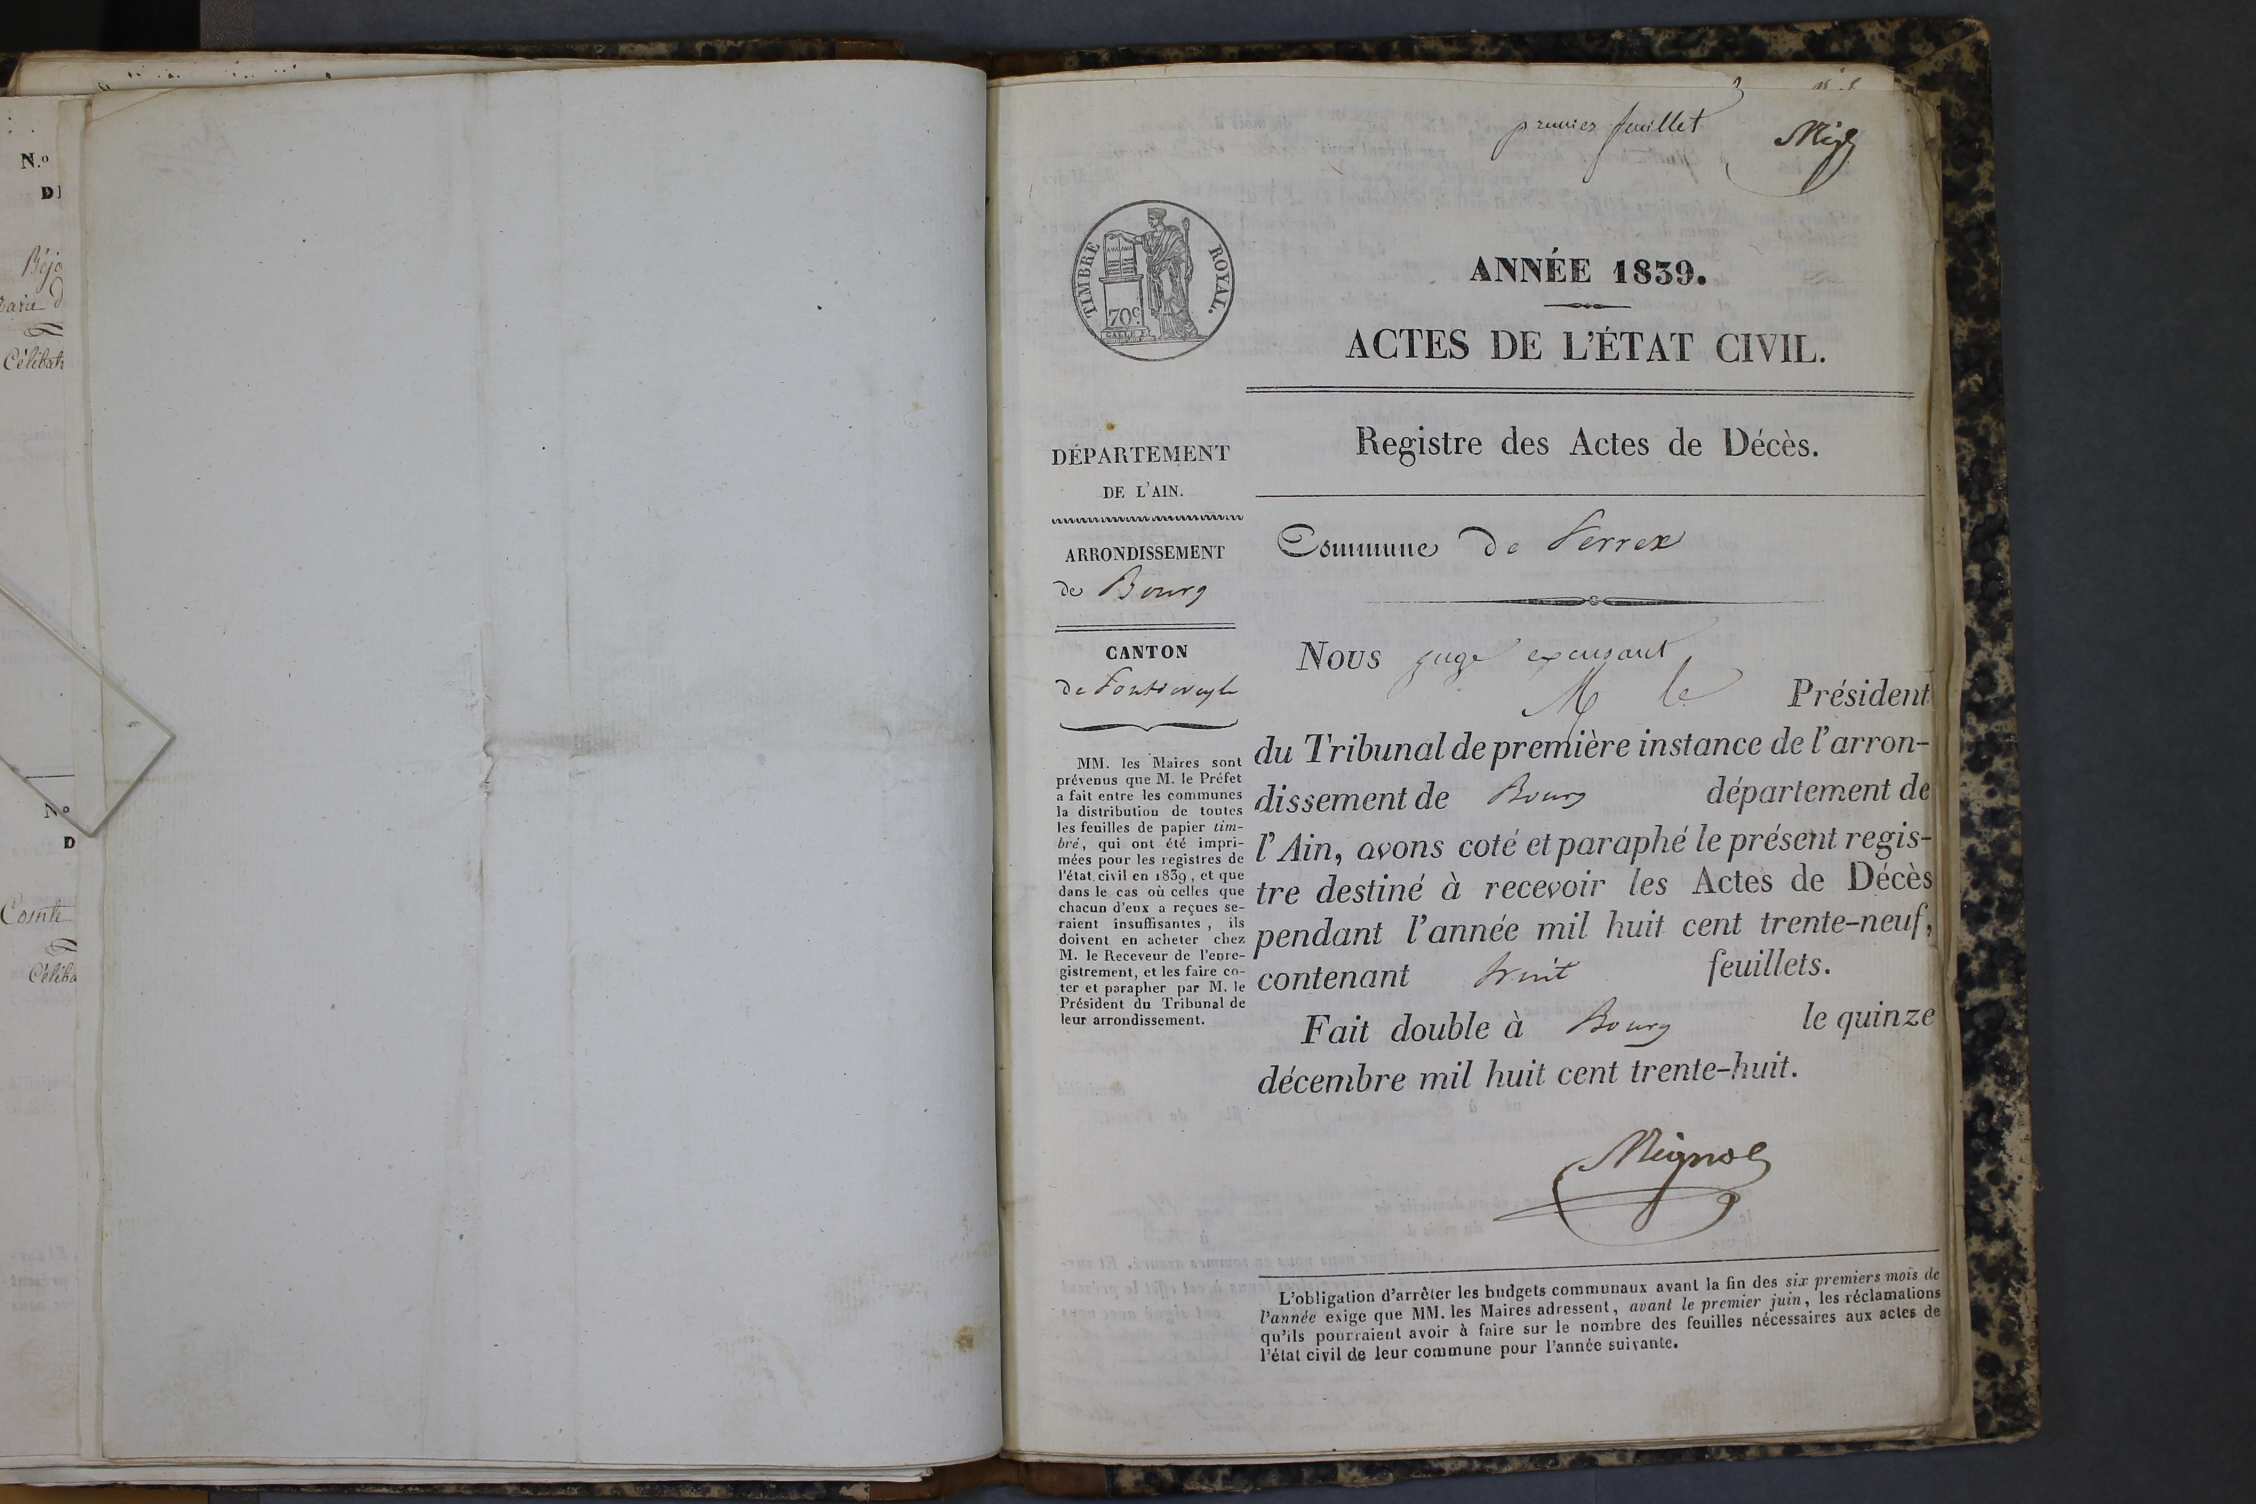 N.º
D
Béjo
Célibat
N.º
D
Comte
Céliba
premier feuillet
Mig
TIMBRE ROYAL.
70c.
ANNÉE 1839.
ACTES DE L'ÉTAT CIVIL.
Registre des Actes de Décès.
DÉPARTEMENT
DE L'AIN.
ARRONDISSEMENT
de Bourg
CANTON
de Pontdeveyle
MM. les Maires sont
prévenus que M. le Préfet
a fait entre les communes
la distribution de toutes
les feuilles de papier tim-
bré, qui ont été impri-
mées pour les registres de
l'état civil en 1839, et que
dans le cas où celles que
chacun d'eux a reçues se-
raient insuffisantes, ils
doivent en acheter chez
M. le Receveur de l'enre-
gistrement, et les faire co-
ter et parapher par M. le
Président du Tribunal de
leur arrondissement.
Commune de Perrex
Nous juge excusant
M le Président
du Tribunal de première instance de l'arron-
dissement de Bourg département de
l'Ain, avons coté et paraphé le présent regis-
tre destiné à recevoir les Actes de Décès
pendant l'année mil huit cent trente-neuf,
contenant huit feuillets.
Fait double à Bourg le quinze
décembre mil huit cent trente-huit.
L'obligation d'arrêter les budgets communaux avant la fin des six premiers mois de
l'année exige que MM. les Maires adressent, avant le premier juin, les réclamations
qu'ils pourraient avoir à faire sur le nombre des feuilles nécessaires aux actes de
l'état civil de leur commune pour l'année suivante.